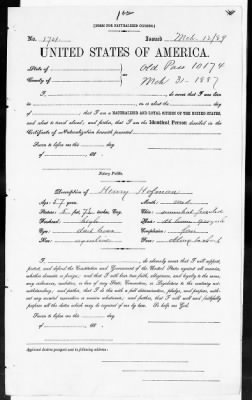 [FORM FOR NATURALIZED CITIZEN.]
No. Issued Mch. 12/89
UNITED STATES OF AMERICA.
State of Old Pass 10174
County of Mch 31-1887
I, do swear that I was born
in on or about the day
of that I am a NATURALIZED AND LOYAL CITIZEN OF THE UNITED STATES,
and about to travel abroad; and further, that I am the Identical Person described in the
Certificate of Naturalization herewith presented.
Sworn to before me this day
of 18
Notary Public.
Description of Henry Hofman
Age: 57 years Mouth:
Stature: 5 feet, 7½ inches, Eng. Chin:
Forehead: high Hair:
Eyes: dark brown Complexion: fair
Nose: aquiline Face:
I, do solemnly swear that I will support,
protect, and defend the Constitution and Government of the United States against all enemies,
whether domestic or foreign; and that I will bear true faith, allegiance, and loyalty to the same,
any ordinance, resolution, or law of any State, Convention, or Legislature to the contrary not-
withstanding; and further, that I do this with a full determination, pledge, and purpose, with-
out any mental reservation or evasion whatsoever; and further, that I will well and faithfully
perform all the duties which may be required of me by law. So help me God.
Sworn to before me this day
of 18
Applicant desires passport sent to following address: